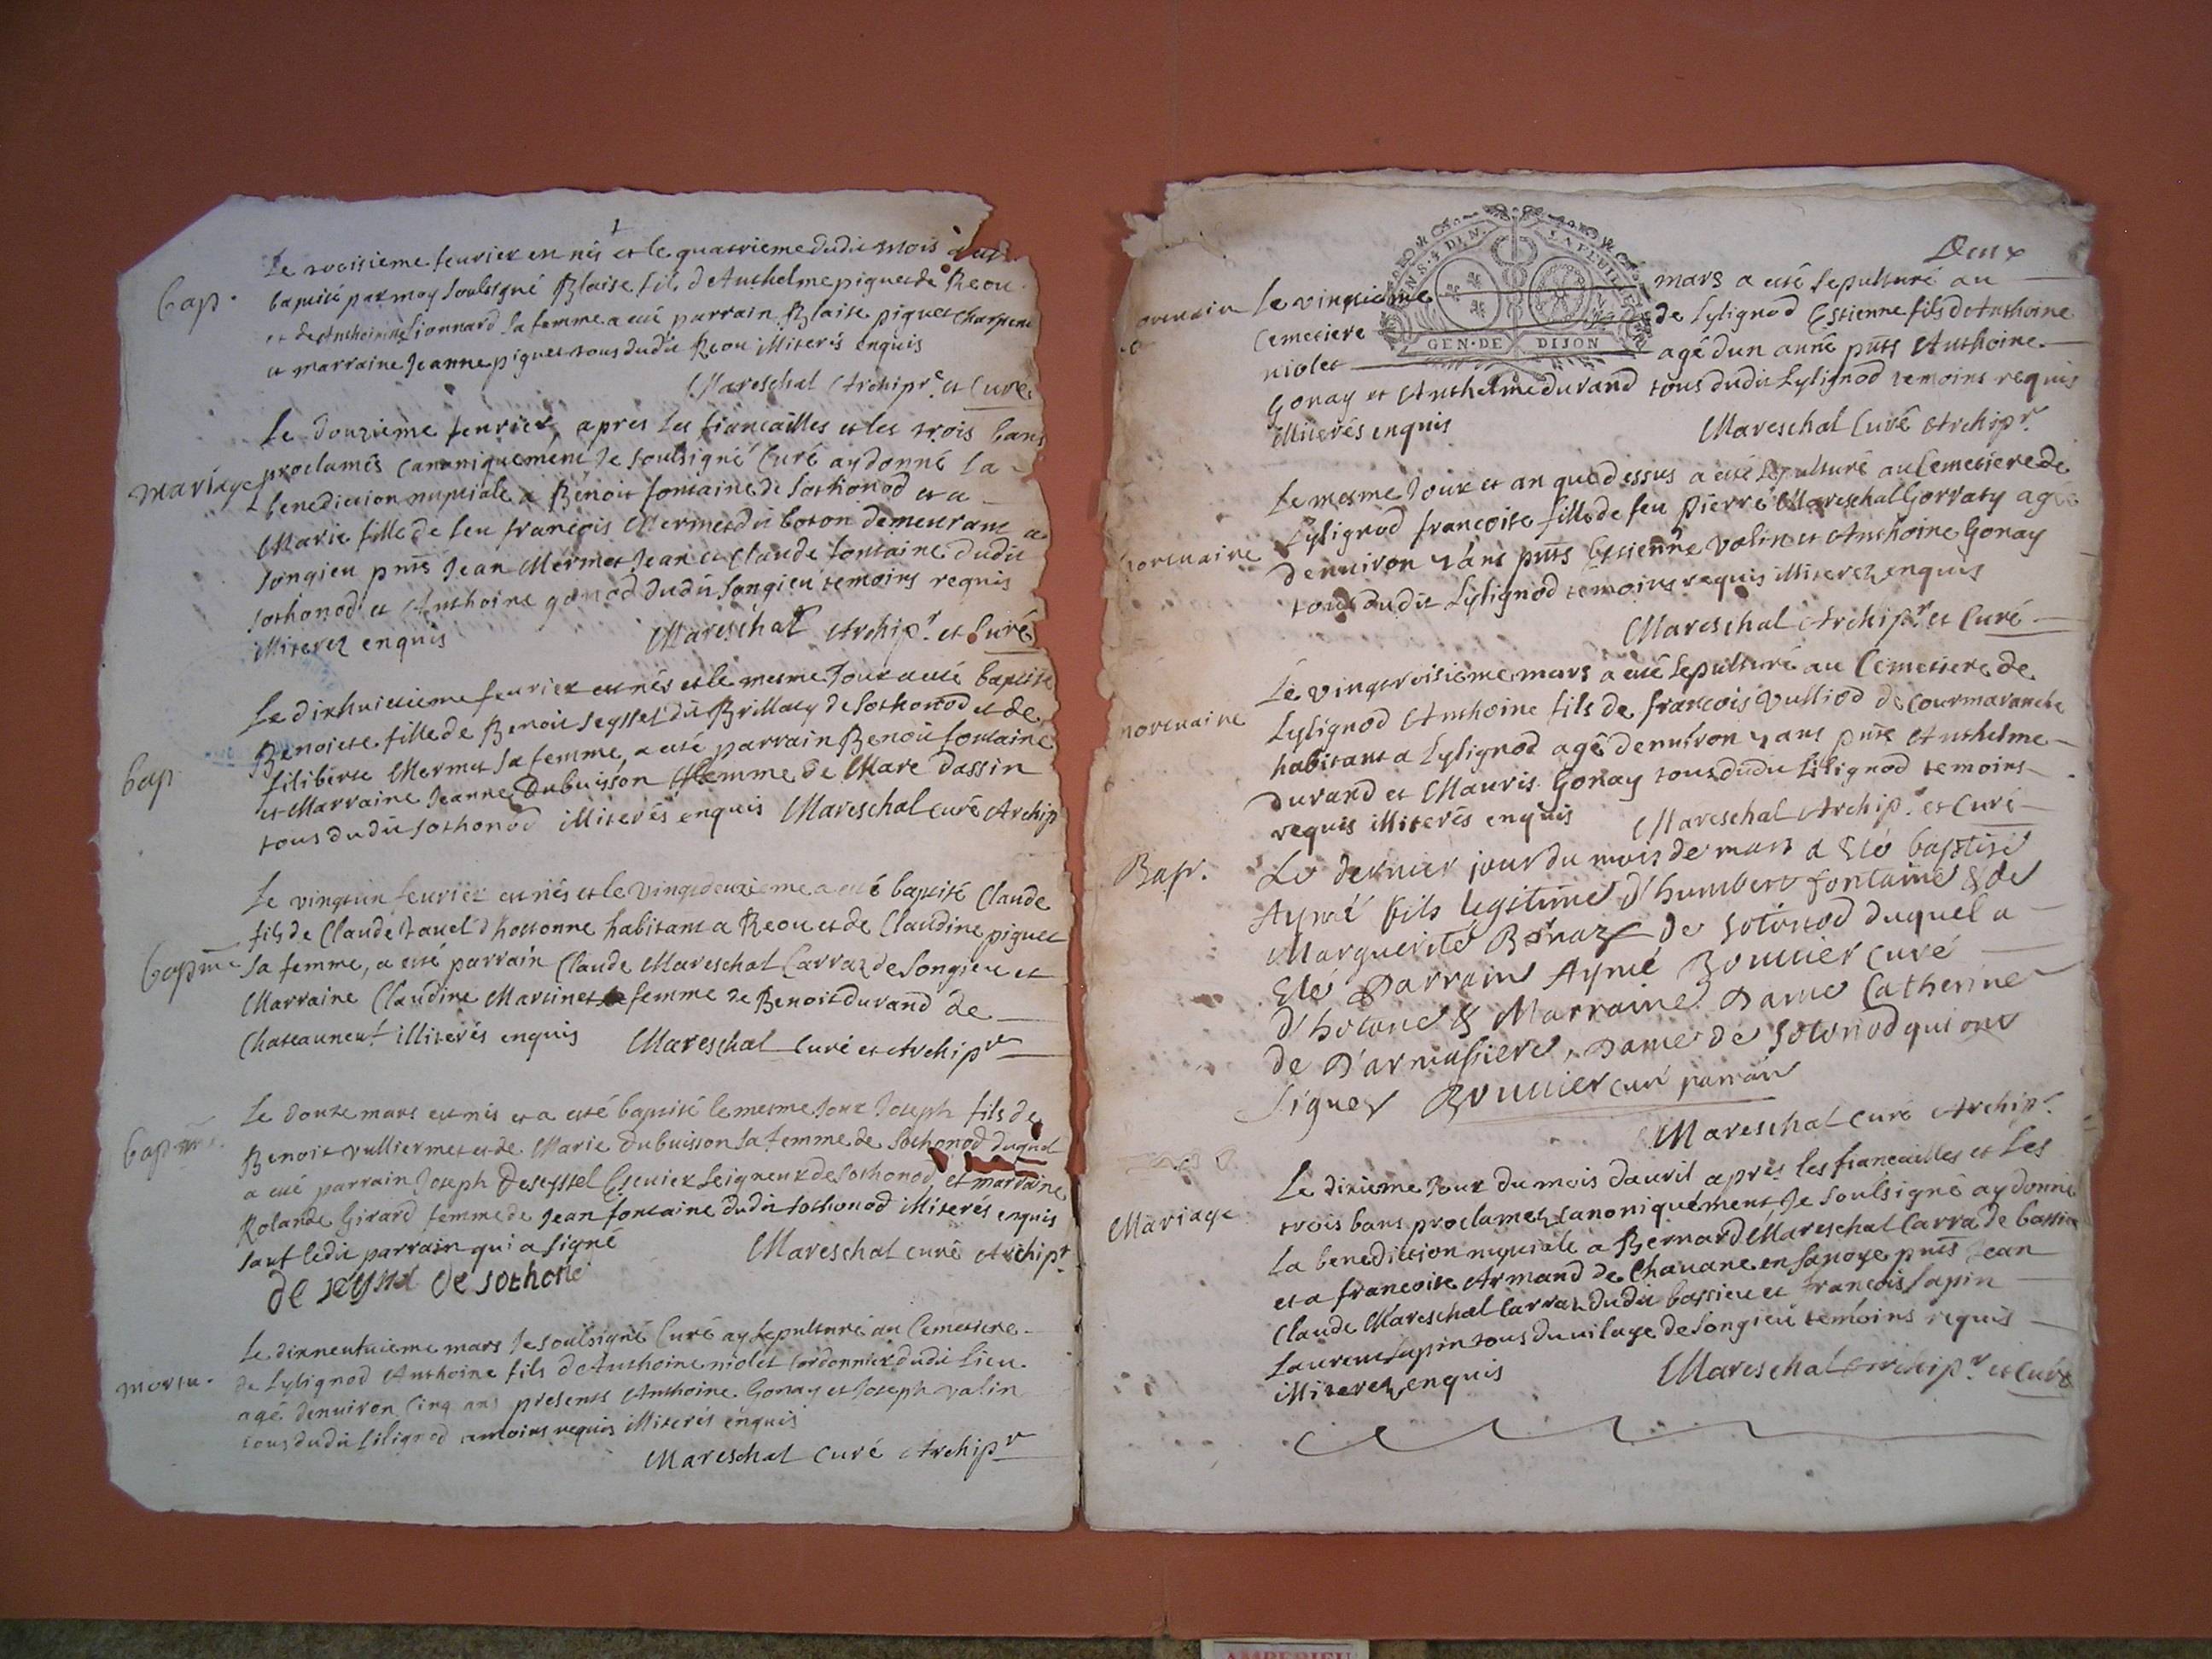 Bap.
Le troisieme feurier est nés et le quatrieme dudit mois
baptisé par moy soubsigné Blaise fils d'Anthelme piquet de Reou
et de Anthoinette Lionnard sa femme a esté parrain Blaise piquet
et marraine Jeanne piquet tous dudit Reou illiterés enquis
Mareschal Archipr. et Curé
Mariage
Le douzieme feurier, apres les fiancailles et les trois bans
proclamés canoniquement Je soubsigné Curé ay donné la
benediction nuptiale a Benoit fontaine de Sothonod et a
Marie fille de feu francois Mermet dit boton demeurant a
Songieu pnts Jean Mermet Jean et Claude fontaine dudit
Sothonod et Anthoine gonod dudit Songieu temoins requis
illiterez enquis Mareschal Archipr. et Curé
Bap
Le dixhuictieme feurier est nés et le mesme Jour a esté baptisé
Benoiste fille de Benoit Seyssel dit Brillaty de Sothonod et de
filiberte Mermet sa femme, a esté parrain Benoit fontaine
et Marraine Jeanne Dubuisson femme de Marc Dassin
tous dudit Sothonod illiterés enquis Mareschal curé Archip
bapme
Le vingtun feurier est nés et le vingtdeuxieme a esté baptisé Claude
fils de Claude d'hottonne habitant a Reou et de Claudine piquet
sa femme, a esté parrain Claude Mareschal Carraz de Songieu et
Marraine Claudine Martinet femme de Benoit durand de
Chateauneuf illiterés enquis Mareschal Curé et Archipr
bapme.
Le douze mars est nis et a esté baptisé le mesme Jour Joseph fils de
Benoit vulliermet et de Marie Dubuisson sa femme de Sothonod duquel
a esté parrain Joseph Deseyssel Escuier Seigneur de Sothonod, et marraine
Rolande Girard femme de Jean fontaine dudit Sothonod illiterés enquis
sauf ledit parrain qui a signé Mareschal curé Archipr.
de seyssel de sothonod
Mortu.
Le dixneufuieme mars Je soubsigné Curé ay sepulturé au Cemetiere
de Lylignod Anthoine fils d'Anthoine niolet Cordonnier dudit lieu
agé denuiron Cinq ans presents Anthoine Gonay et Joseph valin
tous dudit Lilignod temoins requis illiterés enquis
Mareschal Curé Archipr
Deux
GEN·DE DIJON
Le vingtieme mars a esté sepulturé au
Cemetiere de Lylignod Estienne fils d'Anthoine
niolet agé dun anné pnts Anthoine
Gonay et Anthelme durand tous dudit Lylignod temoins requis
illiterés enquis Mareschal Curé Archipr.
mortuaire
Le mesme Jour et an que dessus a esté sepulturé au Cemetiere de
Lylignod francoise fille de feu Pierre Mareschal Gorraty agée
denuiron ans pnts Estienne valin et Anthoine Gonay
tous dudit Lylignod temoins requis illiterez enquis
Mareschal Archipr. et Curé
mortuaire
Le vingtroisieme mars a esté sepulturé au Cemetiere de
Lylignod Anthoine fils de francois Vulliod de Courmaranche
habitant a Lylignod agé denuiron ans pnts Anthelme
durand et Mauris Gonay tous dudit Lilignod temoins
requis illiterés enquis Mareschal Archipr. et Curé
Bapt.
Le dernier jour du mois de mars a esté baptisé
Aymé fils legitime d'humbert fontaine & de
Marguerite Bornaz de Sotonod duquel a
esté Parrain Aymé Bouvier curé
d'hotone & Marraine Dame Catherine
de Darmesiere, Dame de Sotonod qui ont
signez Bouvier curé parrain
Mareschal Curé Archipr.
Mariage
Le dixieme Jour du mois dauril apres les fiancailles et Les
trois bans proclamez canoniquement, Je soubsigné ay donné
la benediction nuptiale a Bernard Mareschal Carra de bassieu
et a francoise Armand de Chauane en Sauoye pnts Jean
Claude Mareschal Carraz dudit bassieu et francois Lapin
Laurent Lapin tous du vilage de Songieu temoins requis
illiterez enquis Mareschal Archipr. et Curé